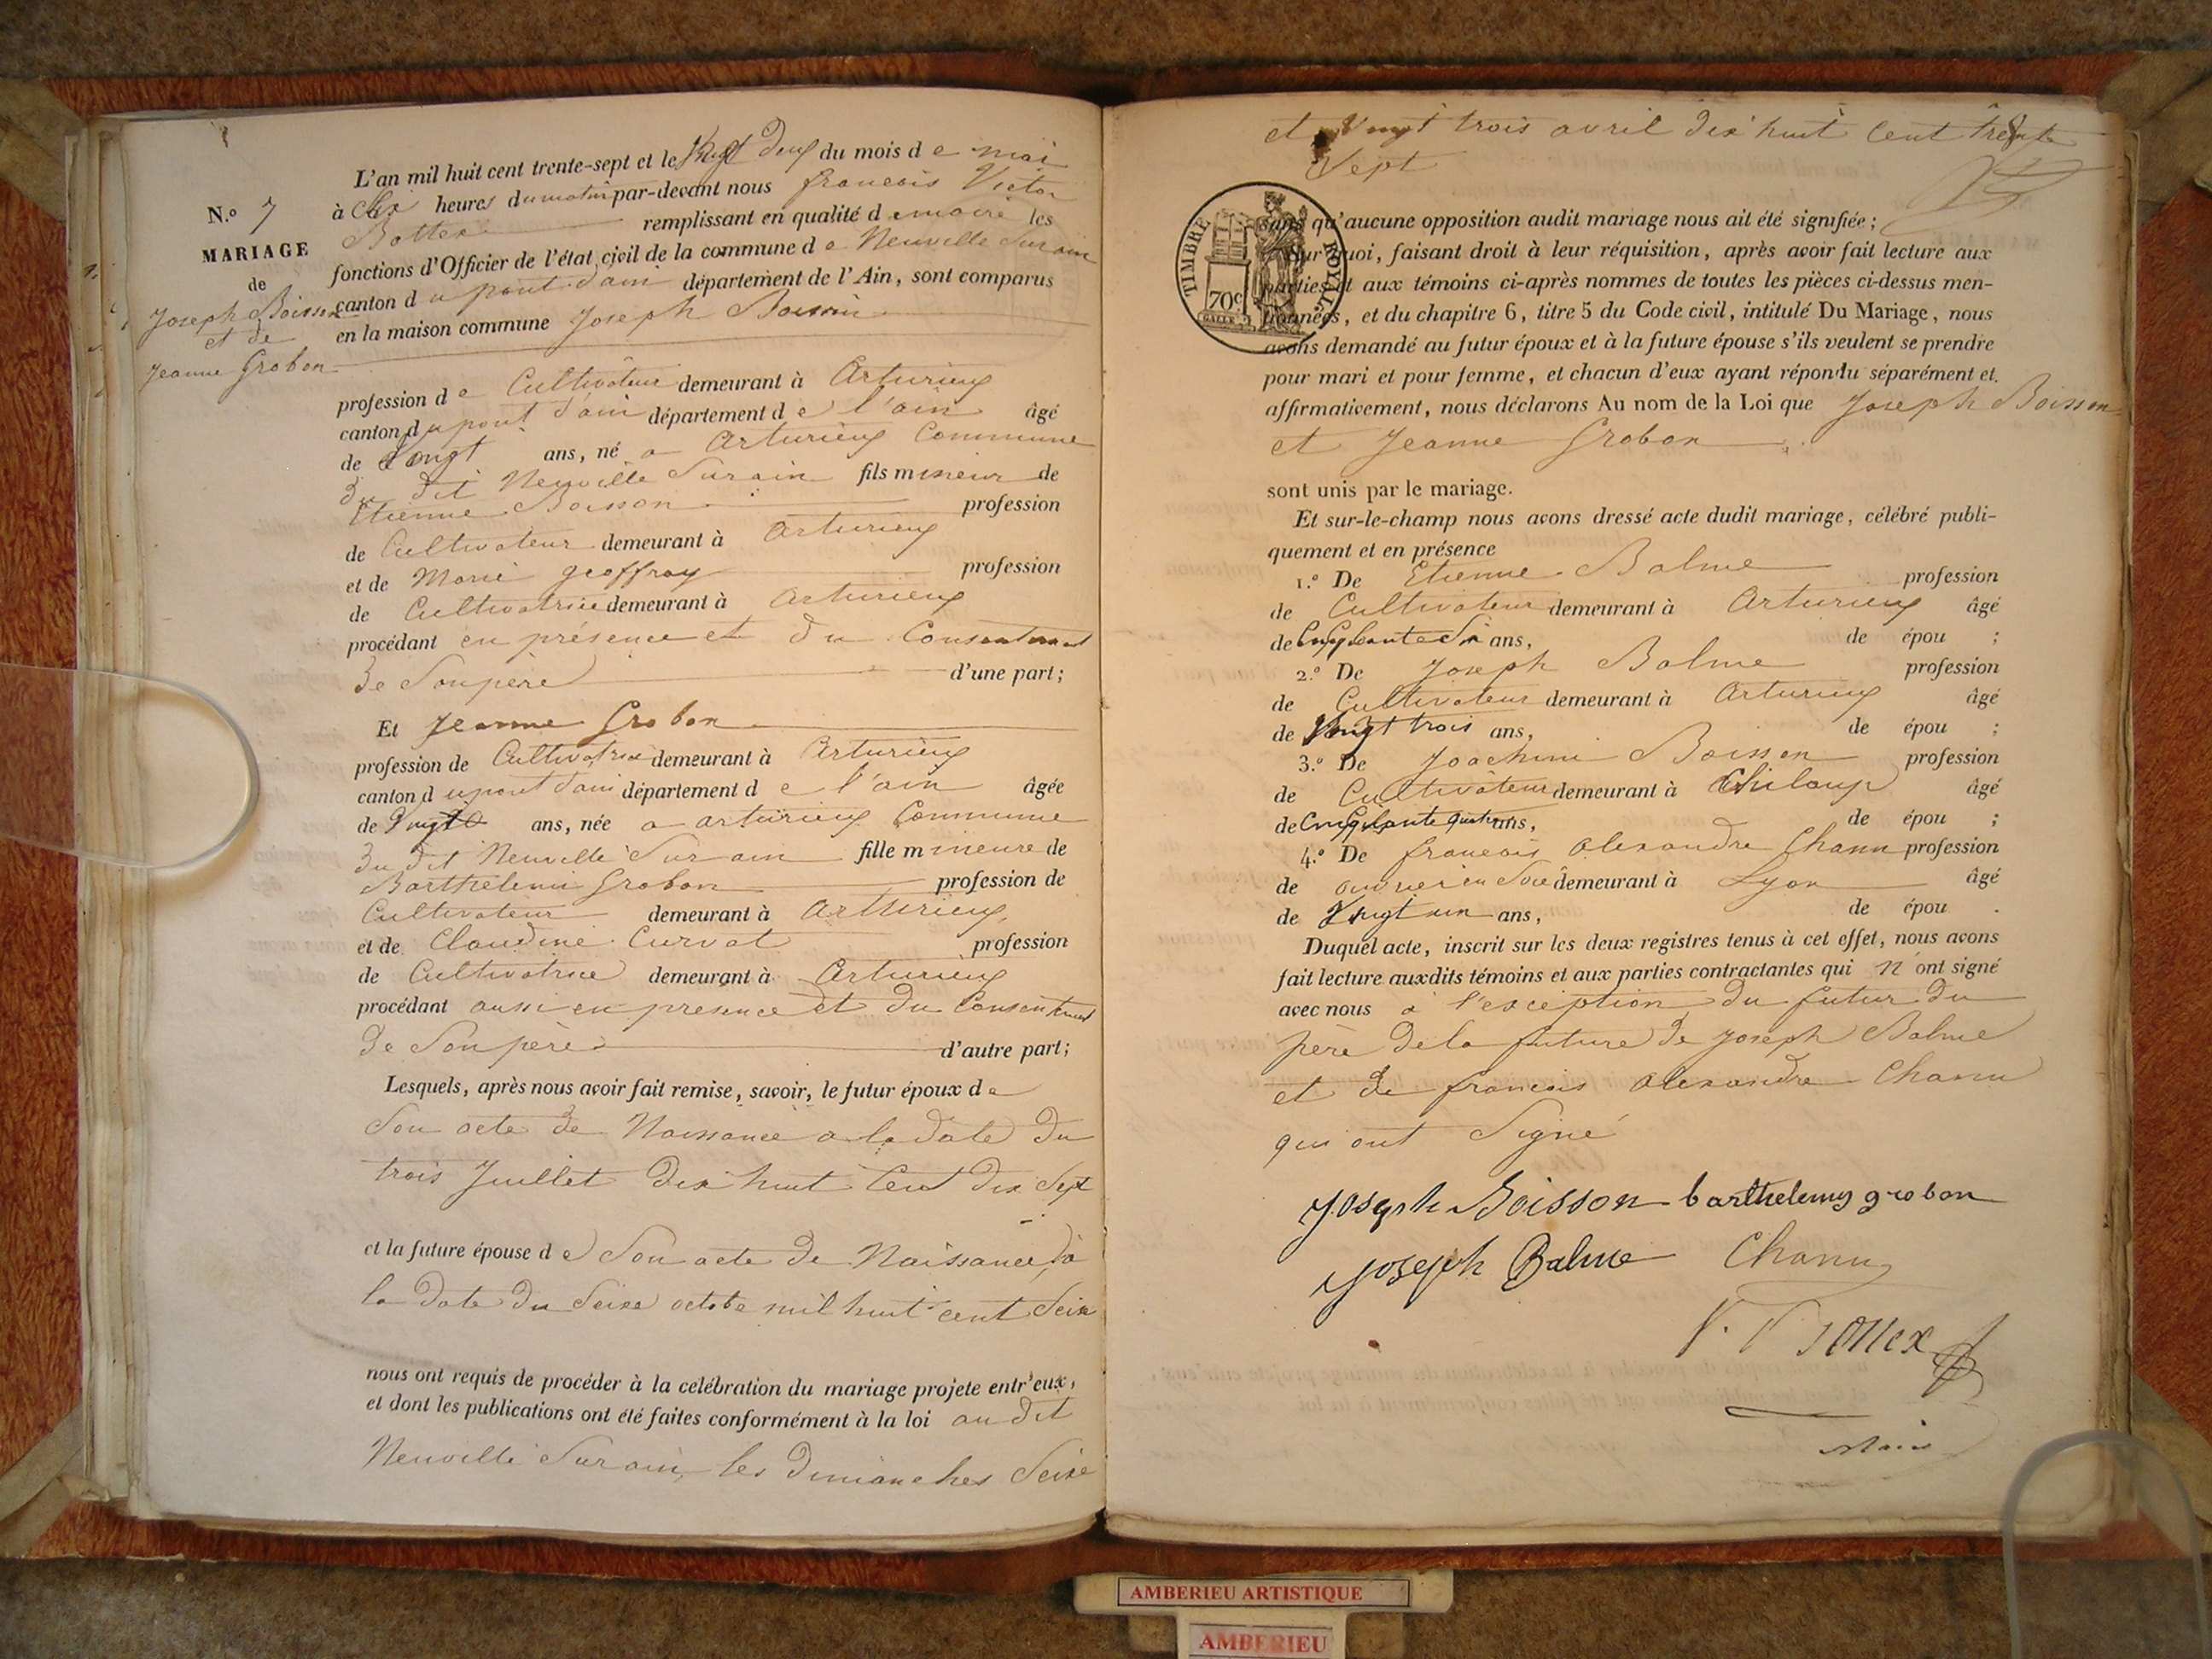 N.o 7
MARIAGE
de
Joseph Boisson
et de
Jeanne Grobon
L'an mil huit cent trente-sept et le Vingt deux du mois de mai
à Six heures du matin par-devant nous francois Victor
Bottex remplissant en qualité de maire les
fonctions d'Officier de l'état civil de la commune de Neuville Sur ain
canton du pont d'ain département de l'Ain, sont comparus
en la maison commune Joseph Boisson
profession de Cultivateur demeurant à Arturieux
canton du pont d'ain département de l'ain âgé
de Vingt ans, né a Arturieux Commune
du dit Neuville Sur ain fils mineur de
Etienne Boisson profession
de Cultivateur demeurant à Arturieux
et de Marie geoffray profession
de Cultivatrice demeurant à Arturieux
procédant en présence et du Consentement
de Son père d'une part;
Et Jeanne Grobon
profession de Cultivatrice demeurant à Arturieux
canton du pont d'ain département de l'ain âgée
de Vingt ans, née a arturieux Commune
du dit Neuville Sur ain fille mineure de
Barthelemi Grobon profession de
Cultivateur demeurant à Arturieux,
et de Claudine Curvat profession
de Cultivatrice demeurant à Arturieux
procédant aussi en presence et du Consentement
de Son père d'autre part;
Lesquels, après nous avoir fait remise, savoir, le futur époux de
Son acte de Naissance a la date du
trois Juillet dix huit Cent dix Sept
et la future épouse de Son acte de Naissance, à
la date du Seize octobre mil huit cent Seize
nous ont requis de procéder à la celébration du mariage projete entr'eux,
et dont les publications ont été faites conformément à la loi au dit
Neuville Sur ain, les dimanches Seize
et Vingt trois avril dix huit Cent trente
Sept
TIMBRE ROYAL
70c
sans qu'aucune opposition audit mariage nous ait été signifiée;
Sur quoi, faisant droit à leur réquisition, après avoir fait lecture aux
parties et aux témoins ci-après nommes de toutes les pièces ci-dessus men-
tionnées, et du chapitre 6, titre 5 du Code civil, intitulé Du Mariage, nous
avons demandé au futur époux et à la future épouse s'ils veulent se prendre
pour mari et pour femme, et chacun d'eux ayant répondu séparément et
affirmativement, nous déclarons Au nom de la Loi que Joseph Boisson
et Jeanne Grobon
sont unis par le mariage.
Et sur-le-champ nous avons dressé acte dudit mariage, célébré publi-
quement et en présence
1.o De Etienne Balme profession
de Cultivateur demeurant à Arturieux âgé
de ans, de épou ;
2.o De Joseph Balme profession
de Cultivateur demeurant à Arturieux âgé
de Vingt trois ans, de épou ;
3.o De Joachim Boisson profession
de Cultivateur demeurant à Chiloup âgé
de ans, de épou ;
4.o De francois alexandre Chanu profession
de ouvrier en Soie demeurant à Lyon âgé
de Vingt un ans, de épou .
Duquel acte, inscrit sur les deux registres tenus à cet effet, nous avons
fait lecture auxdits témoins et aux parties contractantes qui n'ont signé
avec nous a l'exception du futur du
père de la future de Joseph Balme
et de francois alexandre Chanu
qui ont Signé
joseph Boisson barthelemy grobon
joseph Balme Chanu
V. Bottex
Maire
AMBERIEU ARTISTIQUE
AMBERIEU